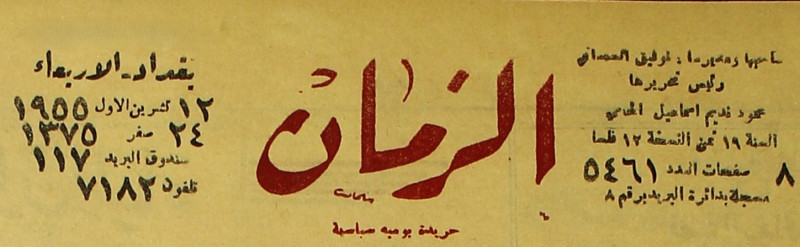 صاحبها ومديرها : توفيق السمعاني
رئيس تحريرها
محمود نديم اسماعيل المحامي
السنة ١٩ ثمن النسخة ١٢ فلسا
٨ صفحات العدد ٥٤٦١
مسجلة بدائرة البريد برقم ٨
الزمان
جريدة يومية سياسية
بغداد ـ الاربعاء
١٢ تشرين الاول ١٩٥٥
٢٤ صفر ١٣٧٥
صندوق البريد ١١٧
تلفون ٧١٨٢